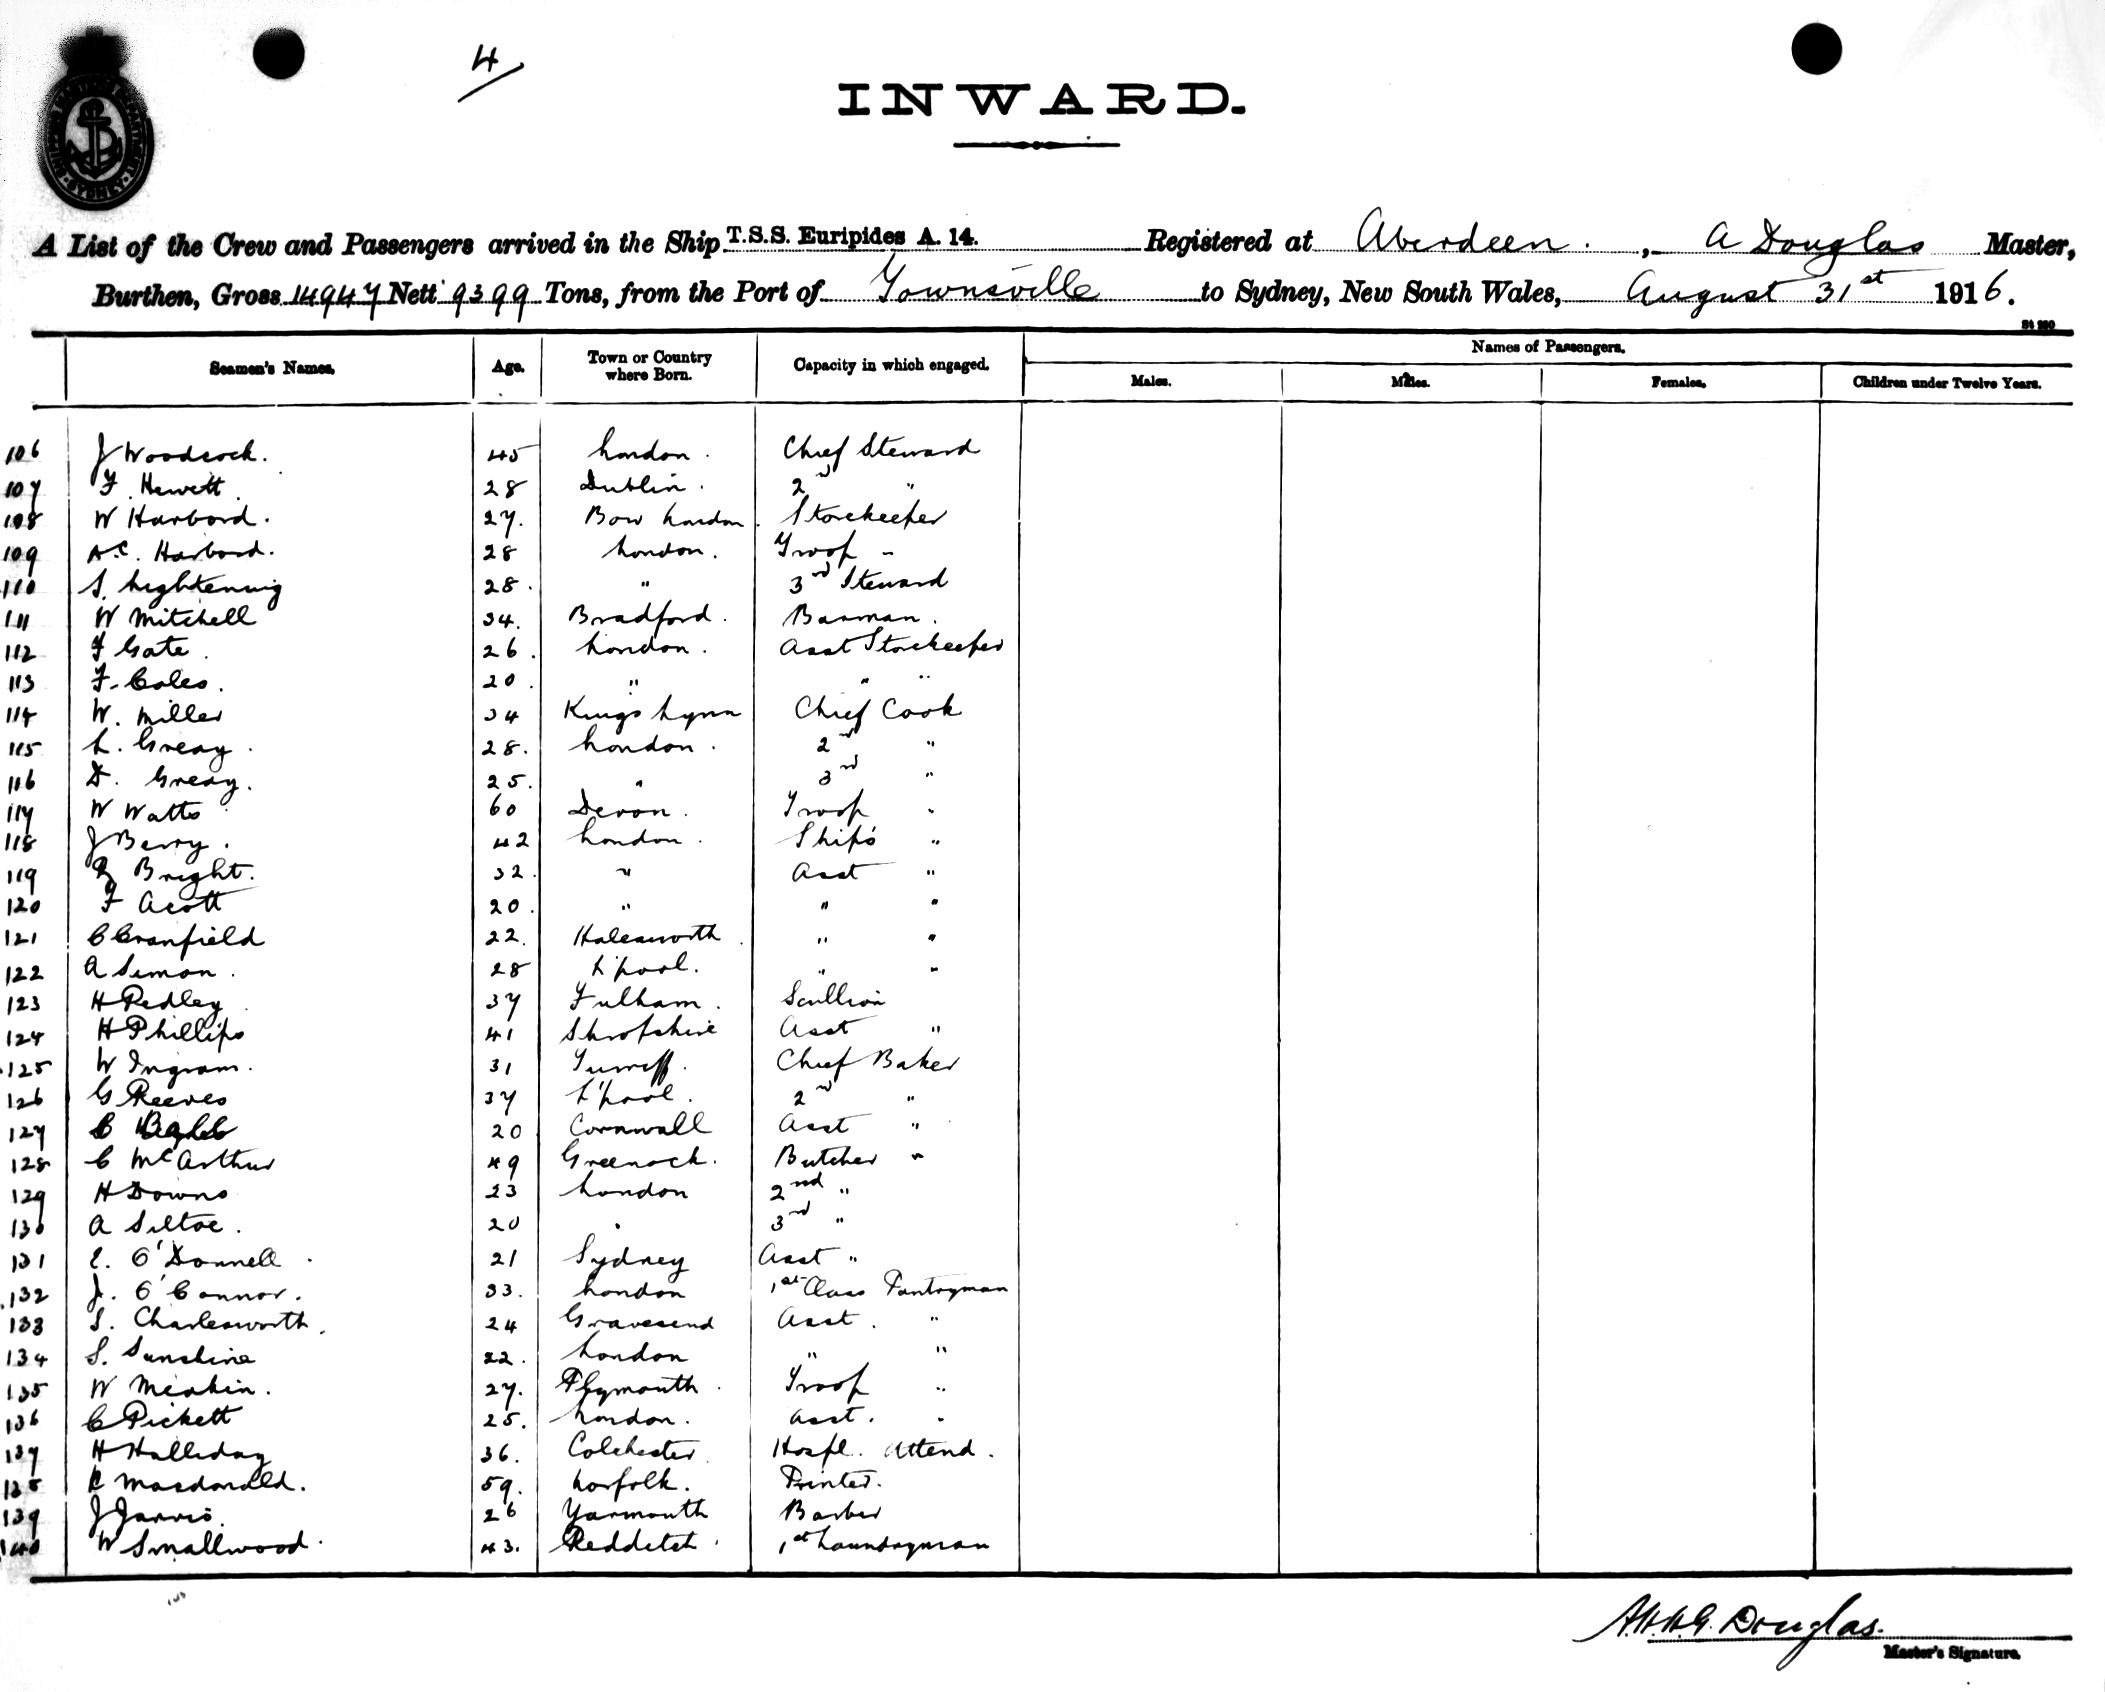 4
INWARD.
A List of the Crew and Passengers arrived in the Ship T.S.S. Euripides A. 14. Registered at Aberdeen. , A Douglas Master,
Burthen, Gross 14947 Nett 9399 Tons, from the Port of Townsville to Sydney, New South Wales, August 31st 1916.
St 280
Seamen's Names. Age. Town or Country where Born. Capacity in which engaged. Names of Passengers.
Males. Males. Females. Children under Twelve Years.
106 J Woodcock. 45 London. Chief Steward
107 F. Hewett 28 Dublin. 2nd "
108 W Harbord. 27. Bow London. Storekeeper
109 A.C. Harbord. 28 London. Troop "
110 S. Lightening 28. " 3rd Steward
111 W Mitchell 34. Bradford. Barman.
112 F Gate 26. London. Asst Storekeeper
113 F. Coles. 20. " " "
114 W. Miller 34 Kings Lynn Chief Cook
115 L. Greay. 28. London. 2nd "
116 D. Greay. 25. " 3rd "
117 W Watts 60 Devon. Troop "
118 J Berry. 42 London. Ship's "
119 Bright. 32. " Asst "
120 F Acott 20. " " "
121 C Cranfield 22. Halesworth " "
122 A Simon. 28 L'pool. " "
123 H Pedley 37 Fulham. Scullion
124 H Phillips 41 Shropshire Asst "
125 W Ingram. 31 Turriff. Chief Baker
126 G Reeves 37 L'pool. 2nd "
127 C 20 Cornwall Asst "
128 C McArthur 49 Greenock. Butcher "
129 H Downs 23 London 2nd "
130 A Siltoe. 20 " 3rd "
131 E. O'Donnell 21 Sydney Asst "
132 J. O'Connor. 33. London 1st Class Pantryman
133 S. Charlesworth. 24 Gravesend Asst. "
134 S. Sunshine 22. London " "
135 W Meakin. 27. Plymouth. Troop "
136 C Pickett 25. London. Asst. "
137 H Halliday 36. Colchester Hospl. Attend.
138 R Macdonald. 59. Norfolk. Printer.
139 J Jarvis. 26 Yarmouth Barber
140 W Smallwood. 43. Redditch. 1st Laundryman
A.H.H.G. Douglas.
Master's Signature.